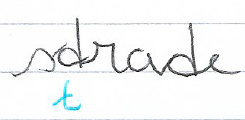 sdrade
t